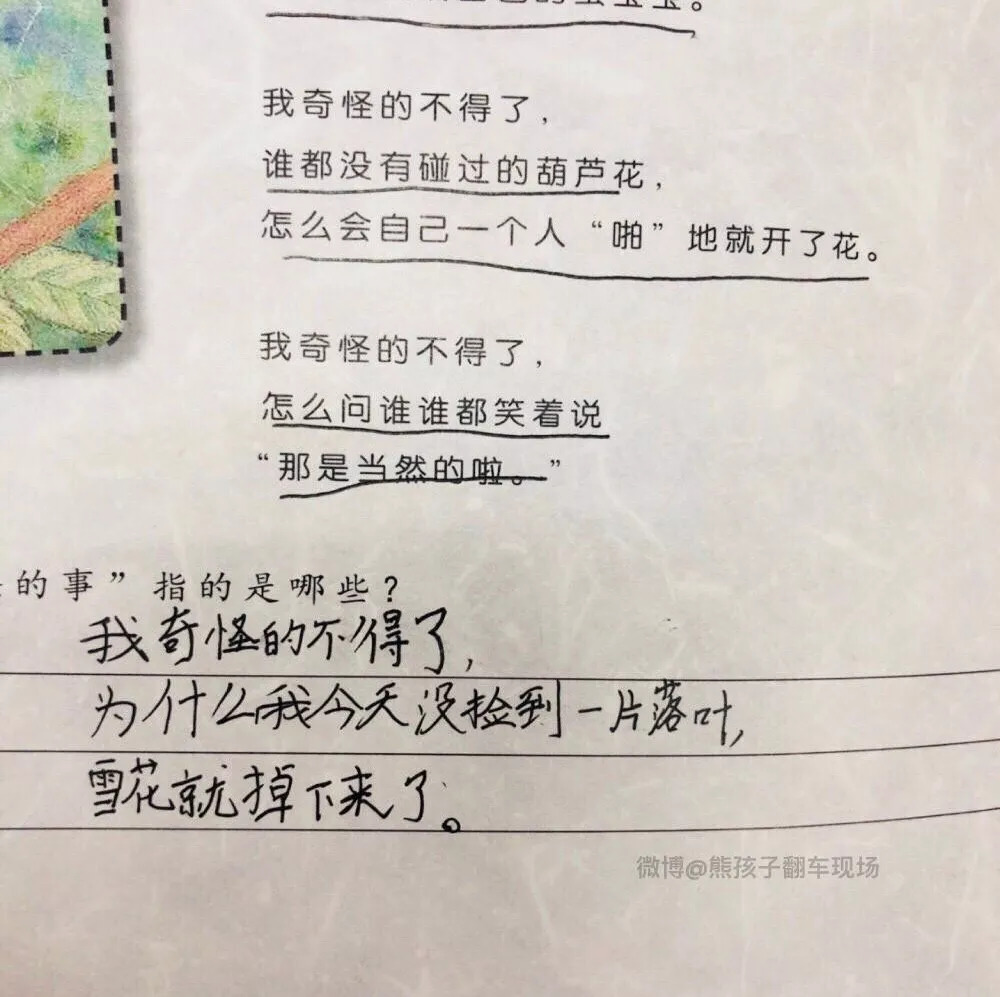 我奇怪的不得了，
谁都没有碰过的葫芦花，
怎么会自己一个人“啪”地就开了花。
我奇怪的不得了，
怎么问谁谁都笑着说
“那是当然的啦。”
的事”指的是哪些？
我奇怪的不得了，
为什么我今天没捡到一片落叶，
雪花就掉下来了。
微博@熊孩子翻车现场